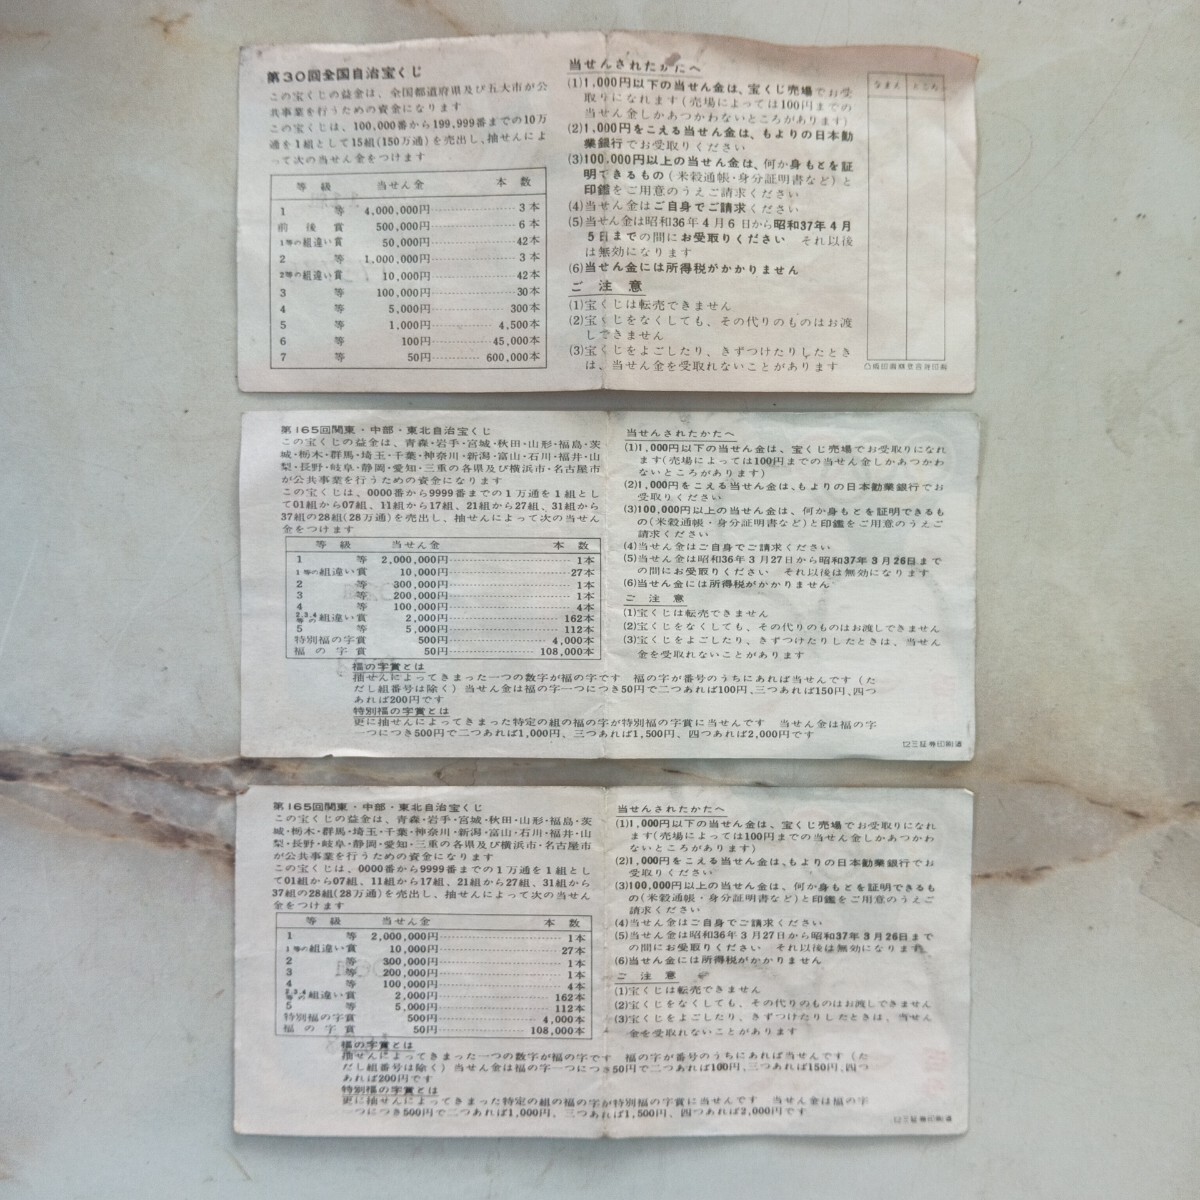 第30回全国自治宝くじ
この宝くじの益金は、全国都道府県及び五大市が公
共事業を行うための資金になります
この宝くじは、100,000番から199,999番までの10万
通を1組として15組(150万通)を売出し、抽せんによ
って次の当せん金をつけます
等級 当せん金 本数
1等 4,000,000円 3本
前後賞 500,000円 6本
1等の組違い賞 50,000円 42本
2等 1,000,000円 3本
2等の組違い賞 10,000円 42本
3等 100,000円 30本
4等 5,000円 300本
5等 1,000円 4,500本
6等 100円 45,000本
7等 50円 600,000本
当せんされたかたへ
(1)1,000円以下の当せん金は、宝くじ売場でお受
取りになれます(売場によっては100円までの
当せん金しかあつかわないところがあります)
(2)1,000円をこえる当せん金は、もよりの日本勧
業銀行でお受取りください
(3)100,000円以上の当せん金は、何か身もとを証
明できるもの(米穀通帳・身分証明書など)と
印鑑をご用意のうえご請求ください
(4)当せん金はご自身でご請求ください
(5)当せん金は昭和36年4月6日から昭和37年4月
5日までの間にお受取りください それ以後
は無効になります
(6)当せん金には所得税がかかりません
ご注意
(1)宝くじは転売できません
(2)宝くじをなくしても、その代りのものはお渡
しできません
(3)宝くじをよごしたり、きずつけたりしたときせ
は、当せん金を受取れないことがあります
なまえ ところ
第165回関東・中部・東北自治宝くじ
この宝くじの益金は、青森・岩手・宮城・秋田・山形・福島・茨
城・栃木・群馬・埼玉・千葉・神奈川・新潟・富山・石川・福井・山
梨・長野・岐阜・静岡・愛知・三重の各県及び横浜市・名古屋市
が公共事業を行うための資金になります
この宝くじは、0000番から9999番までの1万通を1組とし
て01組から07組、11組から17組、21組から27組、31組から
37組の28組(28万通)を売出し、抽せんによって次の当せん
金をつけます
等級 当せん金 本数
1等 2,000,000円 1本
1等の組違い賞 10,000円 27本
2等 300,000円 1本
3等 200,000円 1本
4等 100,000円 4本
2,3,4等の組違い賞 2,000円 162本
5等 5,000円 112本
特別福の字賞 500円 4,000本
福の字賞 50円 108,000本
福の字賞とは
抽せんによってきまった一つの数字が福の字です 福の字が番号のうちにあれば当せんです(た
だし組番号は除く)当せん金は福の字一つにつき50円で二つあれば100円、三つあれば150円、四つ
あれば200円です
特別福の字賞とは
更に抽せんによってきまった特定の組の福の字が特別福の字賞に当せんです 当せん金は福の字
一つにつき500円で二つあれば1,000円、三つあれば1,500円、四つあれば2,000円です
当せんされたかたへ
(1)1,000円以下の当せん金は、宝くじ売場でお受取りになれ
ます(売場によっては100円までの当せん金しかあつかわ
ないところがあります)
(2)1,000円をこえる当せん金は、もよりの日本勧業銀行でお
受取りください
(3)100,000円以上の当せん金は、何か身もとを証明できるも
の(米穀通帳・身分証明書など)と印鑑をご用意のうえご
請求ください
(4)当せん金はご自身でご請求ください
(5)当せん金は昭和36年3月27日から昭和37年3月26日まで
の間にお受取りください それ以後は無効になります
(6)当せん金には所得税がかかりません
ご注意
(1)宝くじは転売できません
(2)宝くじをなくしても、その代りのものはお渡しできません
(3)宝くじをよごしたり、きずつけたりしたときは、当せん
金を受取れないことがあります
第165回関東・中部・東北自治宝くじ
この宝くじの益金は、青森・岩手・宮城・秋田・山形・福島・茨
城・栃木・群馬・埼玉・千葉・神奈川・新潟・富山・石川・福井・山
梨・長野・岐阜・静岡・愛知・三重の各県及び横浜市・名古屋市
が公共事業を行うための資金になります
この宝くじは、0000番から9999番までの1万通を1組とし
て01組から07組、11組から17組、21組から27組、31組から
37組の28組(28万通)を売出し、抽せんによって次の当せん
金をつけます
等級 当せん金 本数
1等 2,000,000円 1本
1等の組違い賞 10,000円 27本
2等 300,000円 1本
3等 200,000円 1本
4等 100,000円 4本
2,3,4等の組違い賞 2,000円 162本
5等 5,000円 112本
特別福の字賞 500円 4,000本
福の字賞 50円 108,000本
福の字賞とは
抽せんによってきまった一つの数字が福の字です 福の字が番号のうちにあれば当せんです(た
だし組番号は除く)当せん金は福の字一つにつき50円で二つあれば100円、三つあれば150円、四つ
あれば200円です
特別福の字賞とは
更に抽せんによってきまった特定の組の福の字が特別福の字賞に当せんです 当せん金は福の字
一つにつき500円で二つあれば1,000円、三つあれば1,500円、四つあれば2,000円です
当せんされたかたへ
(1)1,000円以下の当せん金は、宝くじ売場でお受取りになれ
ます(売場によっては100円までの当せん金しかあつかわ
ないところがあります)
(2)1,000円をこえる当せん金は、もよりの日本勧業銀行でお
受取りください
(3)100,000円以上の当せん金は、何か身もとを証明できるも
の(米穀通帳・身分証明書など)と印鑑をご用意のうえご
請求ください
(4)当せん金はご自身でご請求ください
(5)当せん金は昭和36年3月27日から昭和37年3月26日まで
の間にお受取りください それ以後は無効になります
(6)当せん金には所得税がかかりません
ご注意
(1)宝くじは転売できません
(2)宝くじをなくしても、その代りのものはお渡しできません
(3)宝くじをよごしたり、きずつけたりしたときは、当せん
金を受取れないことがあります